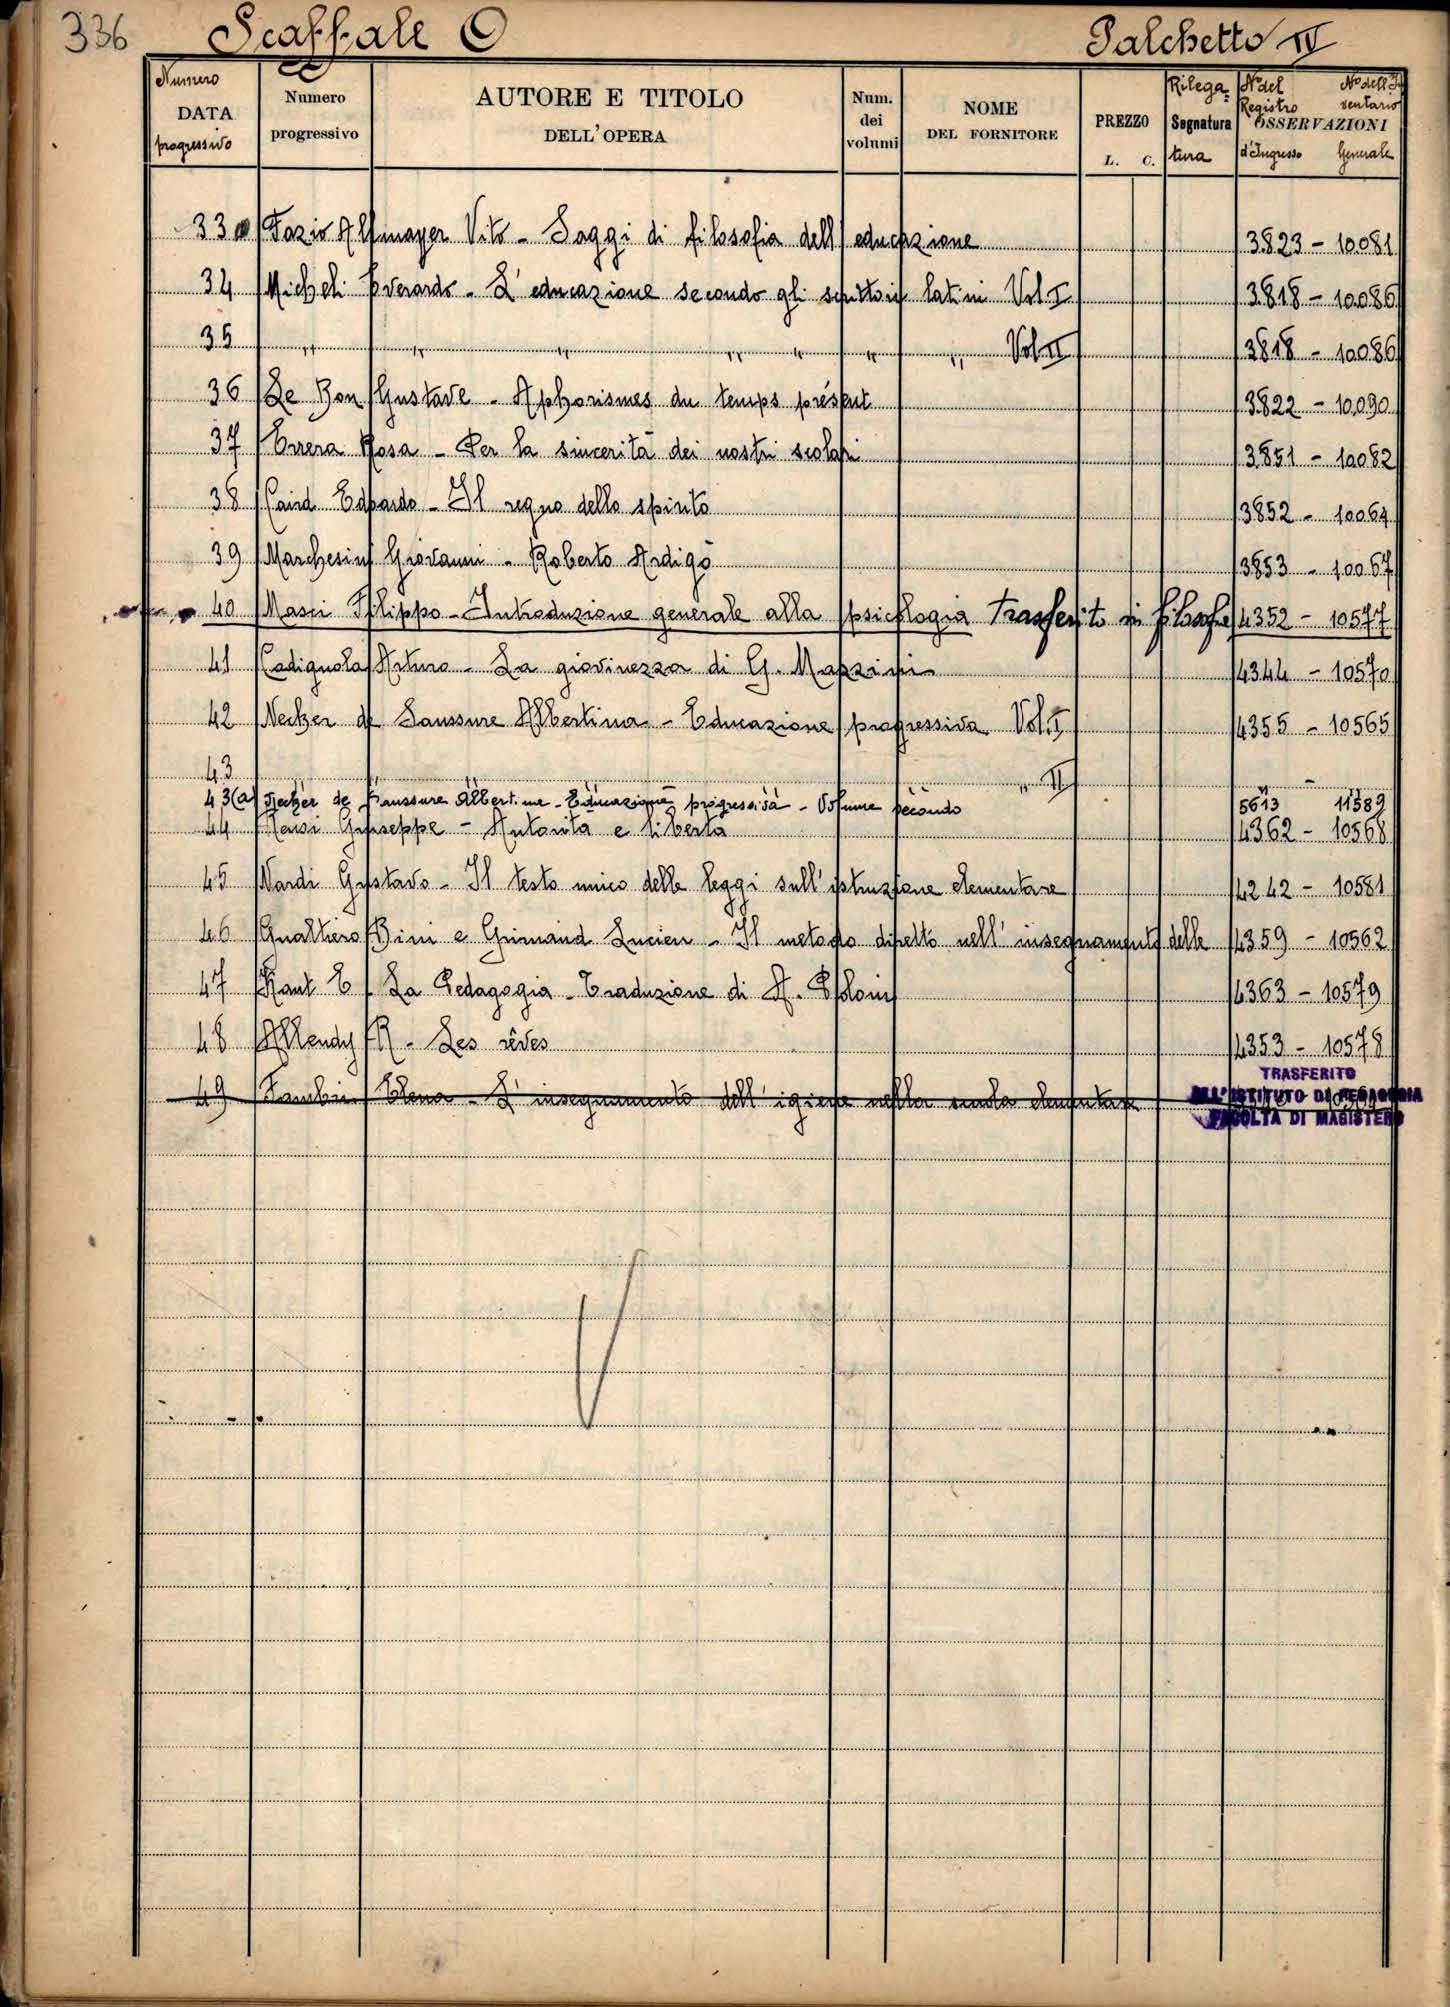 336 Scaffale O Palchetto IV
Numero DATA progressivo
Numero progressivo
AUTORE E TITOLO DELL'OPERA
Num. dei volumi
NOME DEL FORNITORE
PREZZO L. C.
Rilega= Segnatura tura
N° del Registro d'Ingresso N° dell'Inventario Generale OSSERVAZIONI
33 Fazio Allmayer Vito - Saggi di filosofia dell'educazione 3823 - 10081
34 Micheli Everardo - L'educazione secondo gli scrittori latini Vol I 3818 - 10086
35 " " " " " " " Vol II 3818 - 10086
36 Le Bon Gustave - Aphorismes du temps présent 3822 - 10090
37 Errera Rosa - Per la sincerità dei nostri scolari 3851 - 10082
38 Caird Edoardo - Il regno dello spirito 3852 - 10064
39 Marchesini Giovanni - Roberto Ardigò 3853 - 10067
40 Masci Filippo - Introduzione generale alla psicologia Trasferito in filosofia 4352 - 10577
41 Codignola Arturo - La giovinezza di G. Mazzini 4344 - 10570
42 Necker de Saussure Albertina - Educazione progressiva Vol. I 4355 - 10565
43 " " " " " " II " - "
43(a) Necker de Saussure Albertine - Educazione progressiva - Volume secondo 5613 11589
44 Giuseppe - Autorità e libertà 4362 - 10568
45 Nardi Gustavo - Il testo unico delle leggi sull'istruzione elementare 4242 - 10581
46 Gualtiero Bini e Grimaud Lucien - Il metodo diretto nell'insegnamento delle 4359 - 10562
47 Kant E. La Pedagogia - Traduzione di A. Poloni 4363 - 10579
48 Allendy R - Les rêves 4353 - 10578
49 Fambri Elena - L'insegnamento dell'igiene nella scuola elementare
TRASFERITO
ALL'ISTITUTO DI PEDAGOGIA
FACOLTA DI MAGISTERO